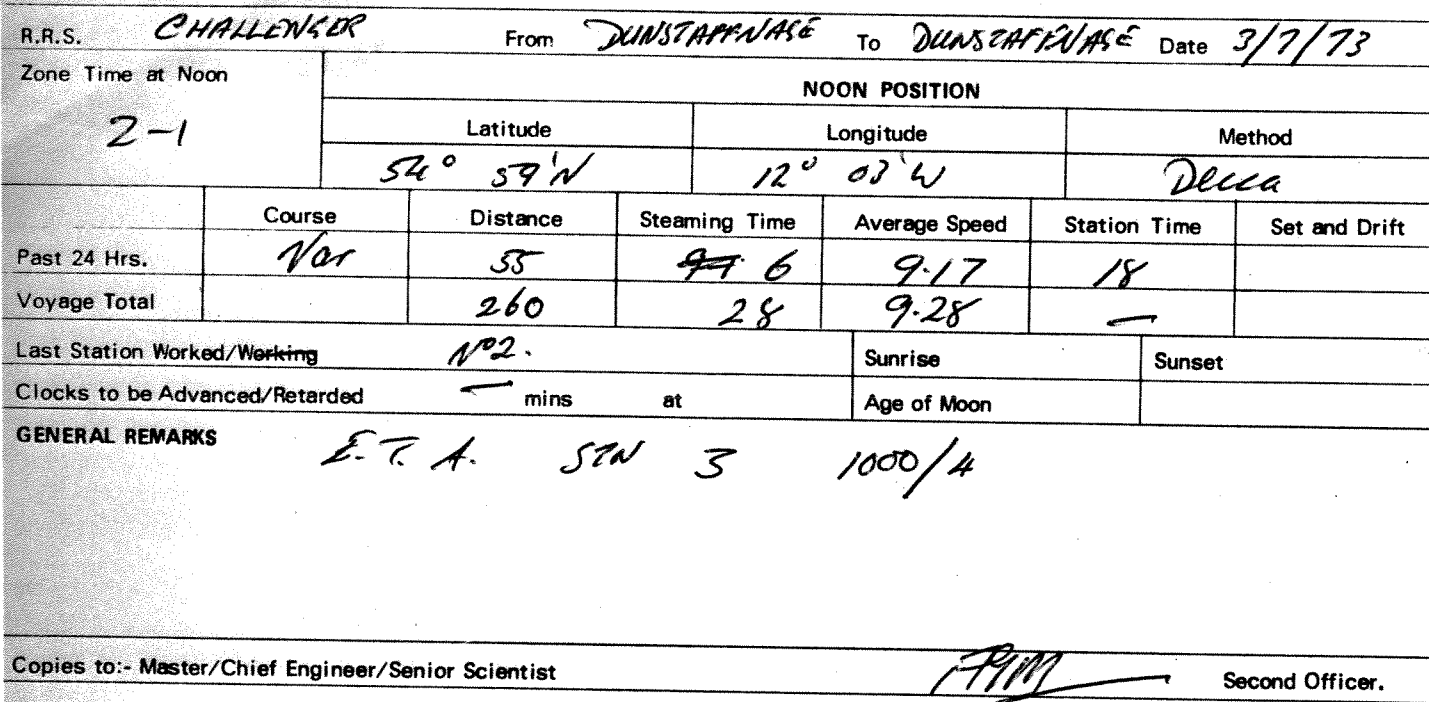 R.R.S. CHALLENGER From DUNSTAFFNAGE To DUNSTAFFNAGE Date 3/7/73
Zone Time at Noon
NOON POSITION
Z-1
Latitude Longitude Method
54° 59'N 12° 03'W Decca
Course Distance Steaming Time Average Speed Station Time Set and Drift
Past 24 Hrs. Var 55 6 9.17 18
Voyage Total 260 28 9.28 —
Last Station Worked/Working Nº2. Sunrise Sunset
Clocks to be Advanced/Retarded — mins at Age of Moon
GENERAL REMARKS
E.T.A. STN 3 1000/4
Copies to:- Master/Chief Engineer/Senior Scientist Second Officer.